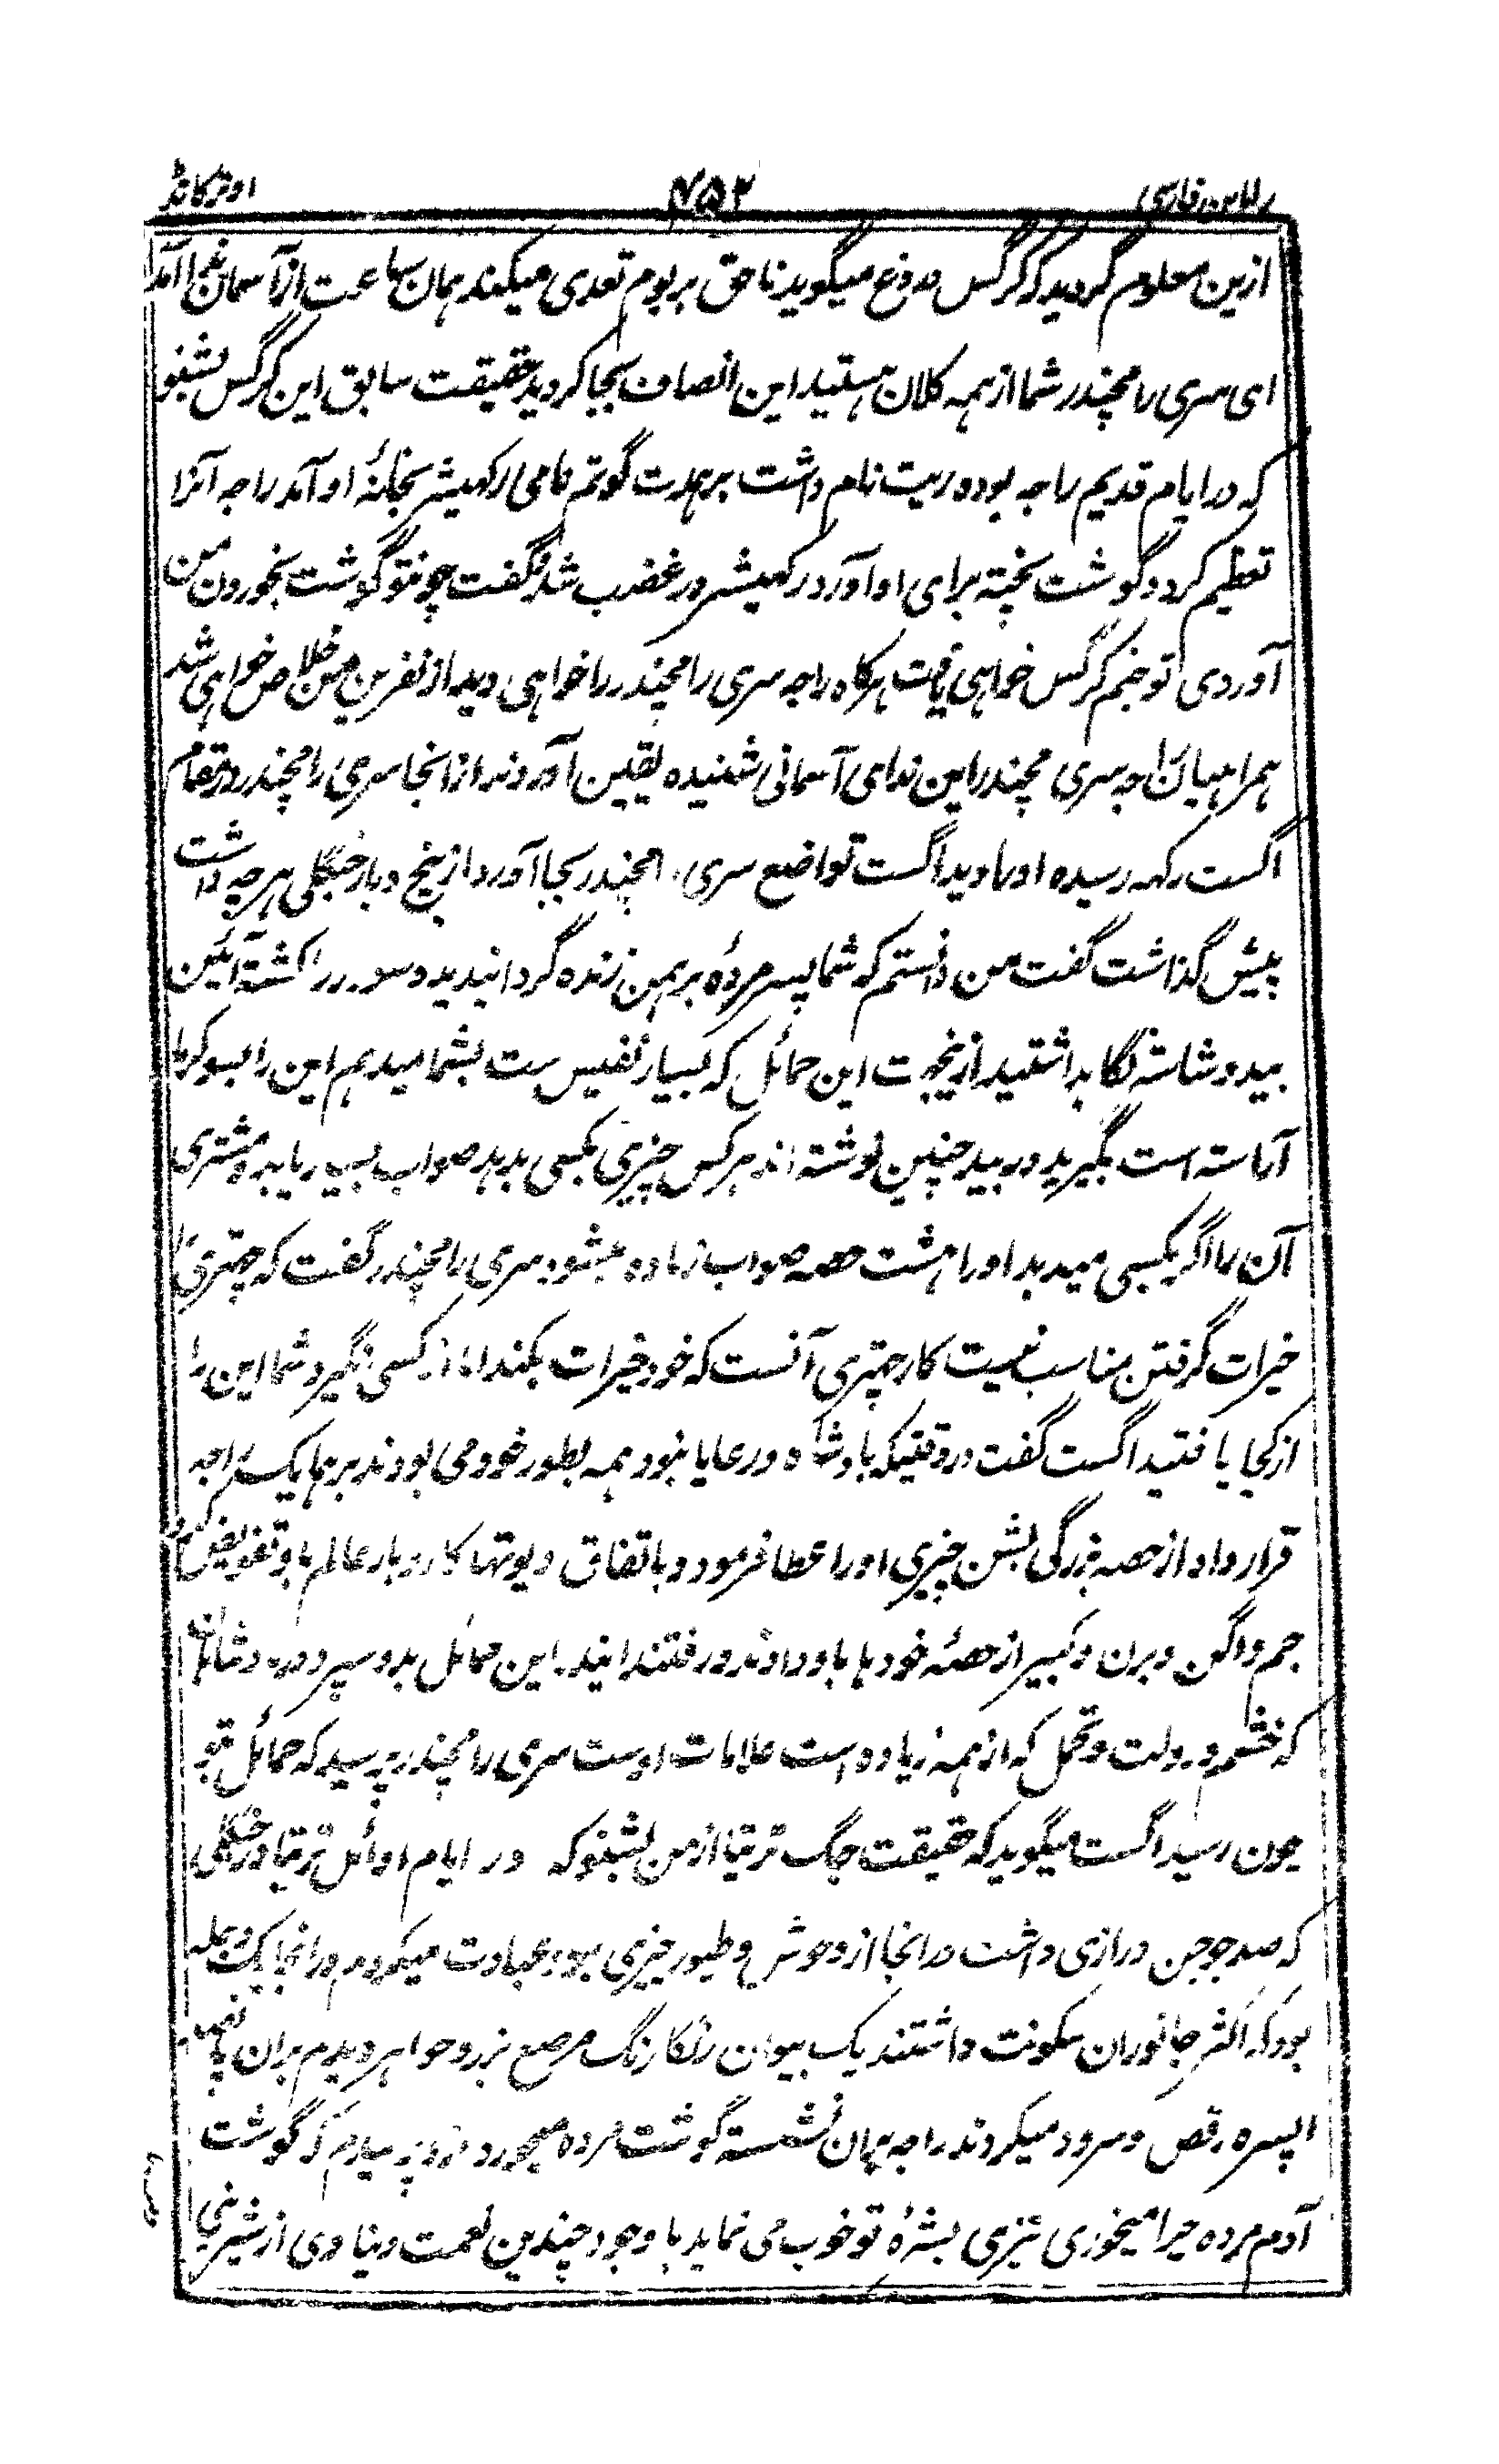 راماین فارسی ۴۵۲ اوترکانڈ
ازین معلوم گردید که گرگس دروغ میگوید ناحق بر بوم تعدی میکند همان ساعت از آسمان ندا آمد
ای سری رامچندر شما از همه کلان هستید این انصاف بجا کردید حقیقت سابق این گرگس بشنو
که در ایام قدیم راجه بوده ریت نام داشت برهمدت گوتم نامی رکهیشر بخانهٔ او آمد راجه آنرا
تعظیم کرد و گوشت پخته برای او آورد رکهیشر در غضب شد و گفت چونتو گوشت بخوردن من
آوردی تو جنم گرگس خواهی یافت هرگاه راجه سری رامچندر را خواهی دید از نفرین من خلاص خواهی شد
همراهیان راجه سری مچندر این ندای آسمانی شنیده یقین آوردند از انجا سری رامچندر در مقام
اگست رکهه رسیده او را دید اگست تواضع سری رامچندر بجا آورد از بیخ و بار جنگلی هرچه داشت
پیش گذاشت گفت من دانستم که شما پسر مردهٔ برهمن زنده گردانیدید و سودر را کشته آئین
بید و شاشتر نگاهداشتید ازینجهت این حمائل که بسیار نفیس ست بشما میدهم این را بسوکرما
آراسته است بگیرید در بید چنین نوشته اند هر کس چیزی بکسی بدهد صواب بسیار یابد و مشتری
آن را اگر بکسی میدهد او را هشت حصه صواب زیاده میشود سری رامچندر گفت که چتری را
خیرات گرفتن مناسب نیست کار چتری آنست که خود خیرات بکند اما از کسی نگیرد شما این را
از کجا یافتید اگست گفت در وقتیکه بادشاه در رعایا نبود همه بطور خود می بودند برهما یک راجه
قرار داد از حصه بزرگی بشن چیزی او را عطا فرمود و باتفاق دیوتها کاروبار عالم باو تفویض کرد
جم و اگن و برن و کبیر از حصهٔ خودها باو دادند و رفتند ایند این حمائل بدو سپرد در شاهان
که خشم و دولت و تحمل که از همه زیاده است علامات اوست سری رامچندر پرسید که حمائل بتو
چون رسید اگست میگوید که حقیقت جگ ترتیا از من بشنو که در ایام اوائل ترتیا در جنگلی
که صد جوجن درازی داشت در انجا از وحوش و طیور چیزی نبود عبادت میکردم در انجا یک
بود که اکثر جانوران سکونت داشتند یک بیوان رنگارنگ مرصع بزر و جواهر دیدم بران پانصد
اپسره رقص و سرود میکردند راجه بران نشسته گوشت مرده میخورد ازو پرسیدم که گوشت
آدم مرده چرا میخوری تیزی بشرهٔ تو خوب می نماید با وجود چندین نعمت دنیاوی از شیرینی